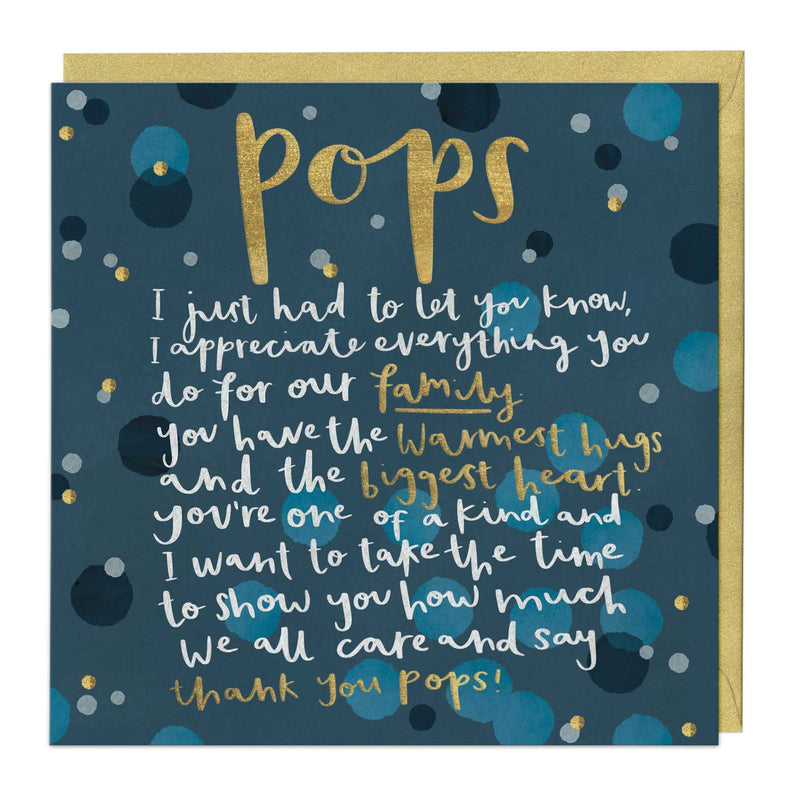 pops
I just had to let you know,
I appreciate everything you
do for our family.
you have the warmest hugs
and the biggest heart.
you're one of a kind and
I want to take the time
to show you how much
we all care and say
thank you pops!